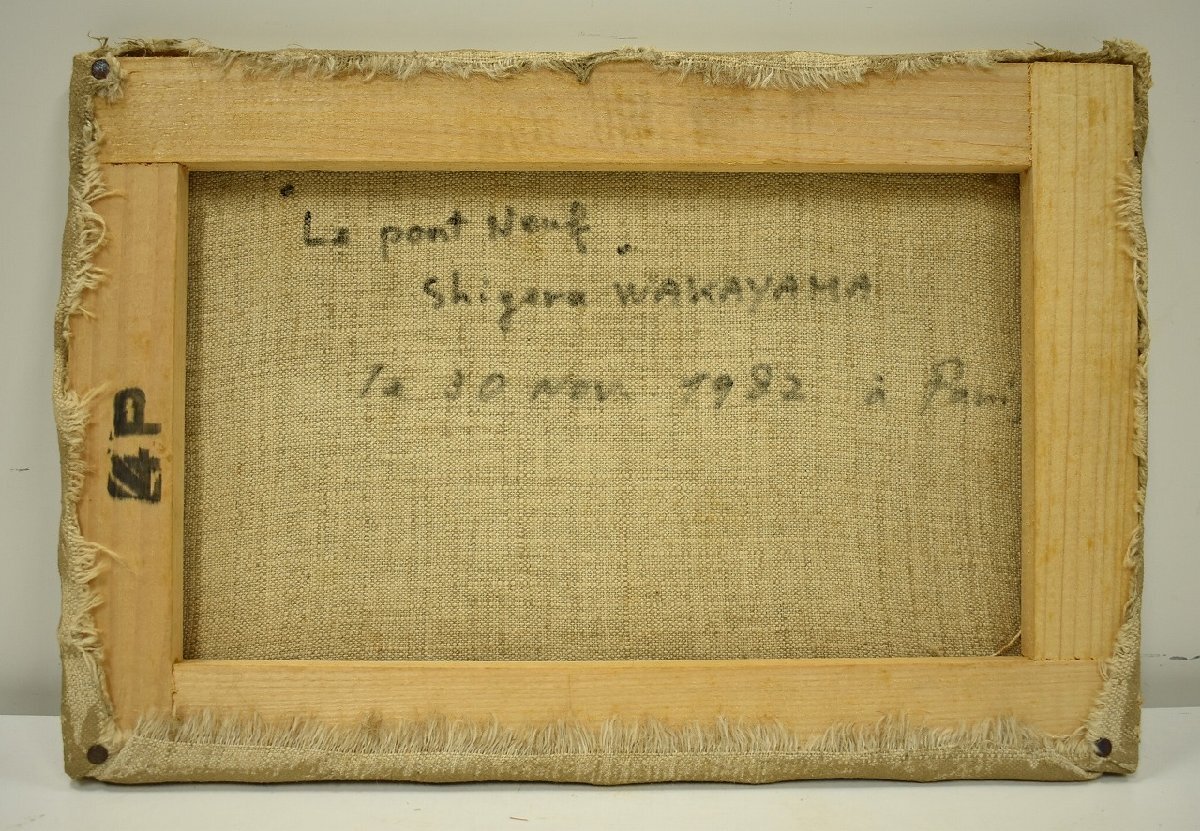 Le pont Neuf
Shigeru WAKAYAMA
le 30 nov 1982 à Paris
4P